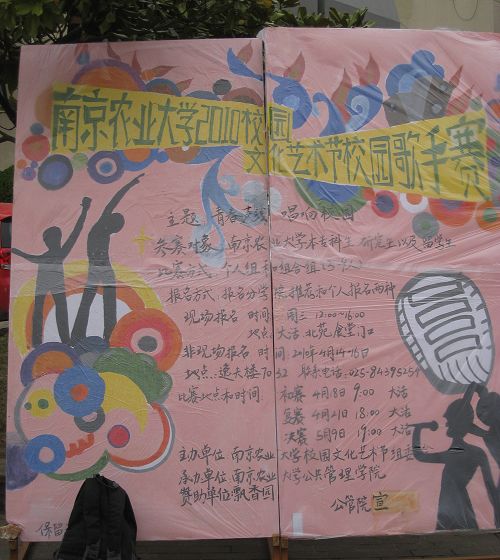 南京农业大学2010校园
文化艺术节校园歌手赛
主题 青春声线 唱响校园
参赛对象 南京农业大学本专科生 研究生以及留学生
比赛方式 个人组和组合组(3-9人)
报名方式 报名分学院推荐和个人报名两种
现场报名 时间 周三 12:00~16:00
地点 大活 北苑食堂门口
非现场报名 时间 2010年4月14-16日
地点 逸夫楼7032 联系电话 025-84395254
比赛地点和时间 初赛 4月18日 9:00 大活
复赛 4月21日 18:00 大活
决赛 5月9日 19:00 大活
主办单位 南京农业大学校园文化艺术节组委会
承办单位 南京农业大学公共管理学院
赞助单位 飘香园
公管院宣
保留